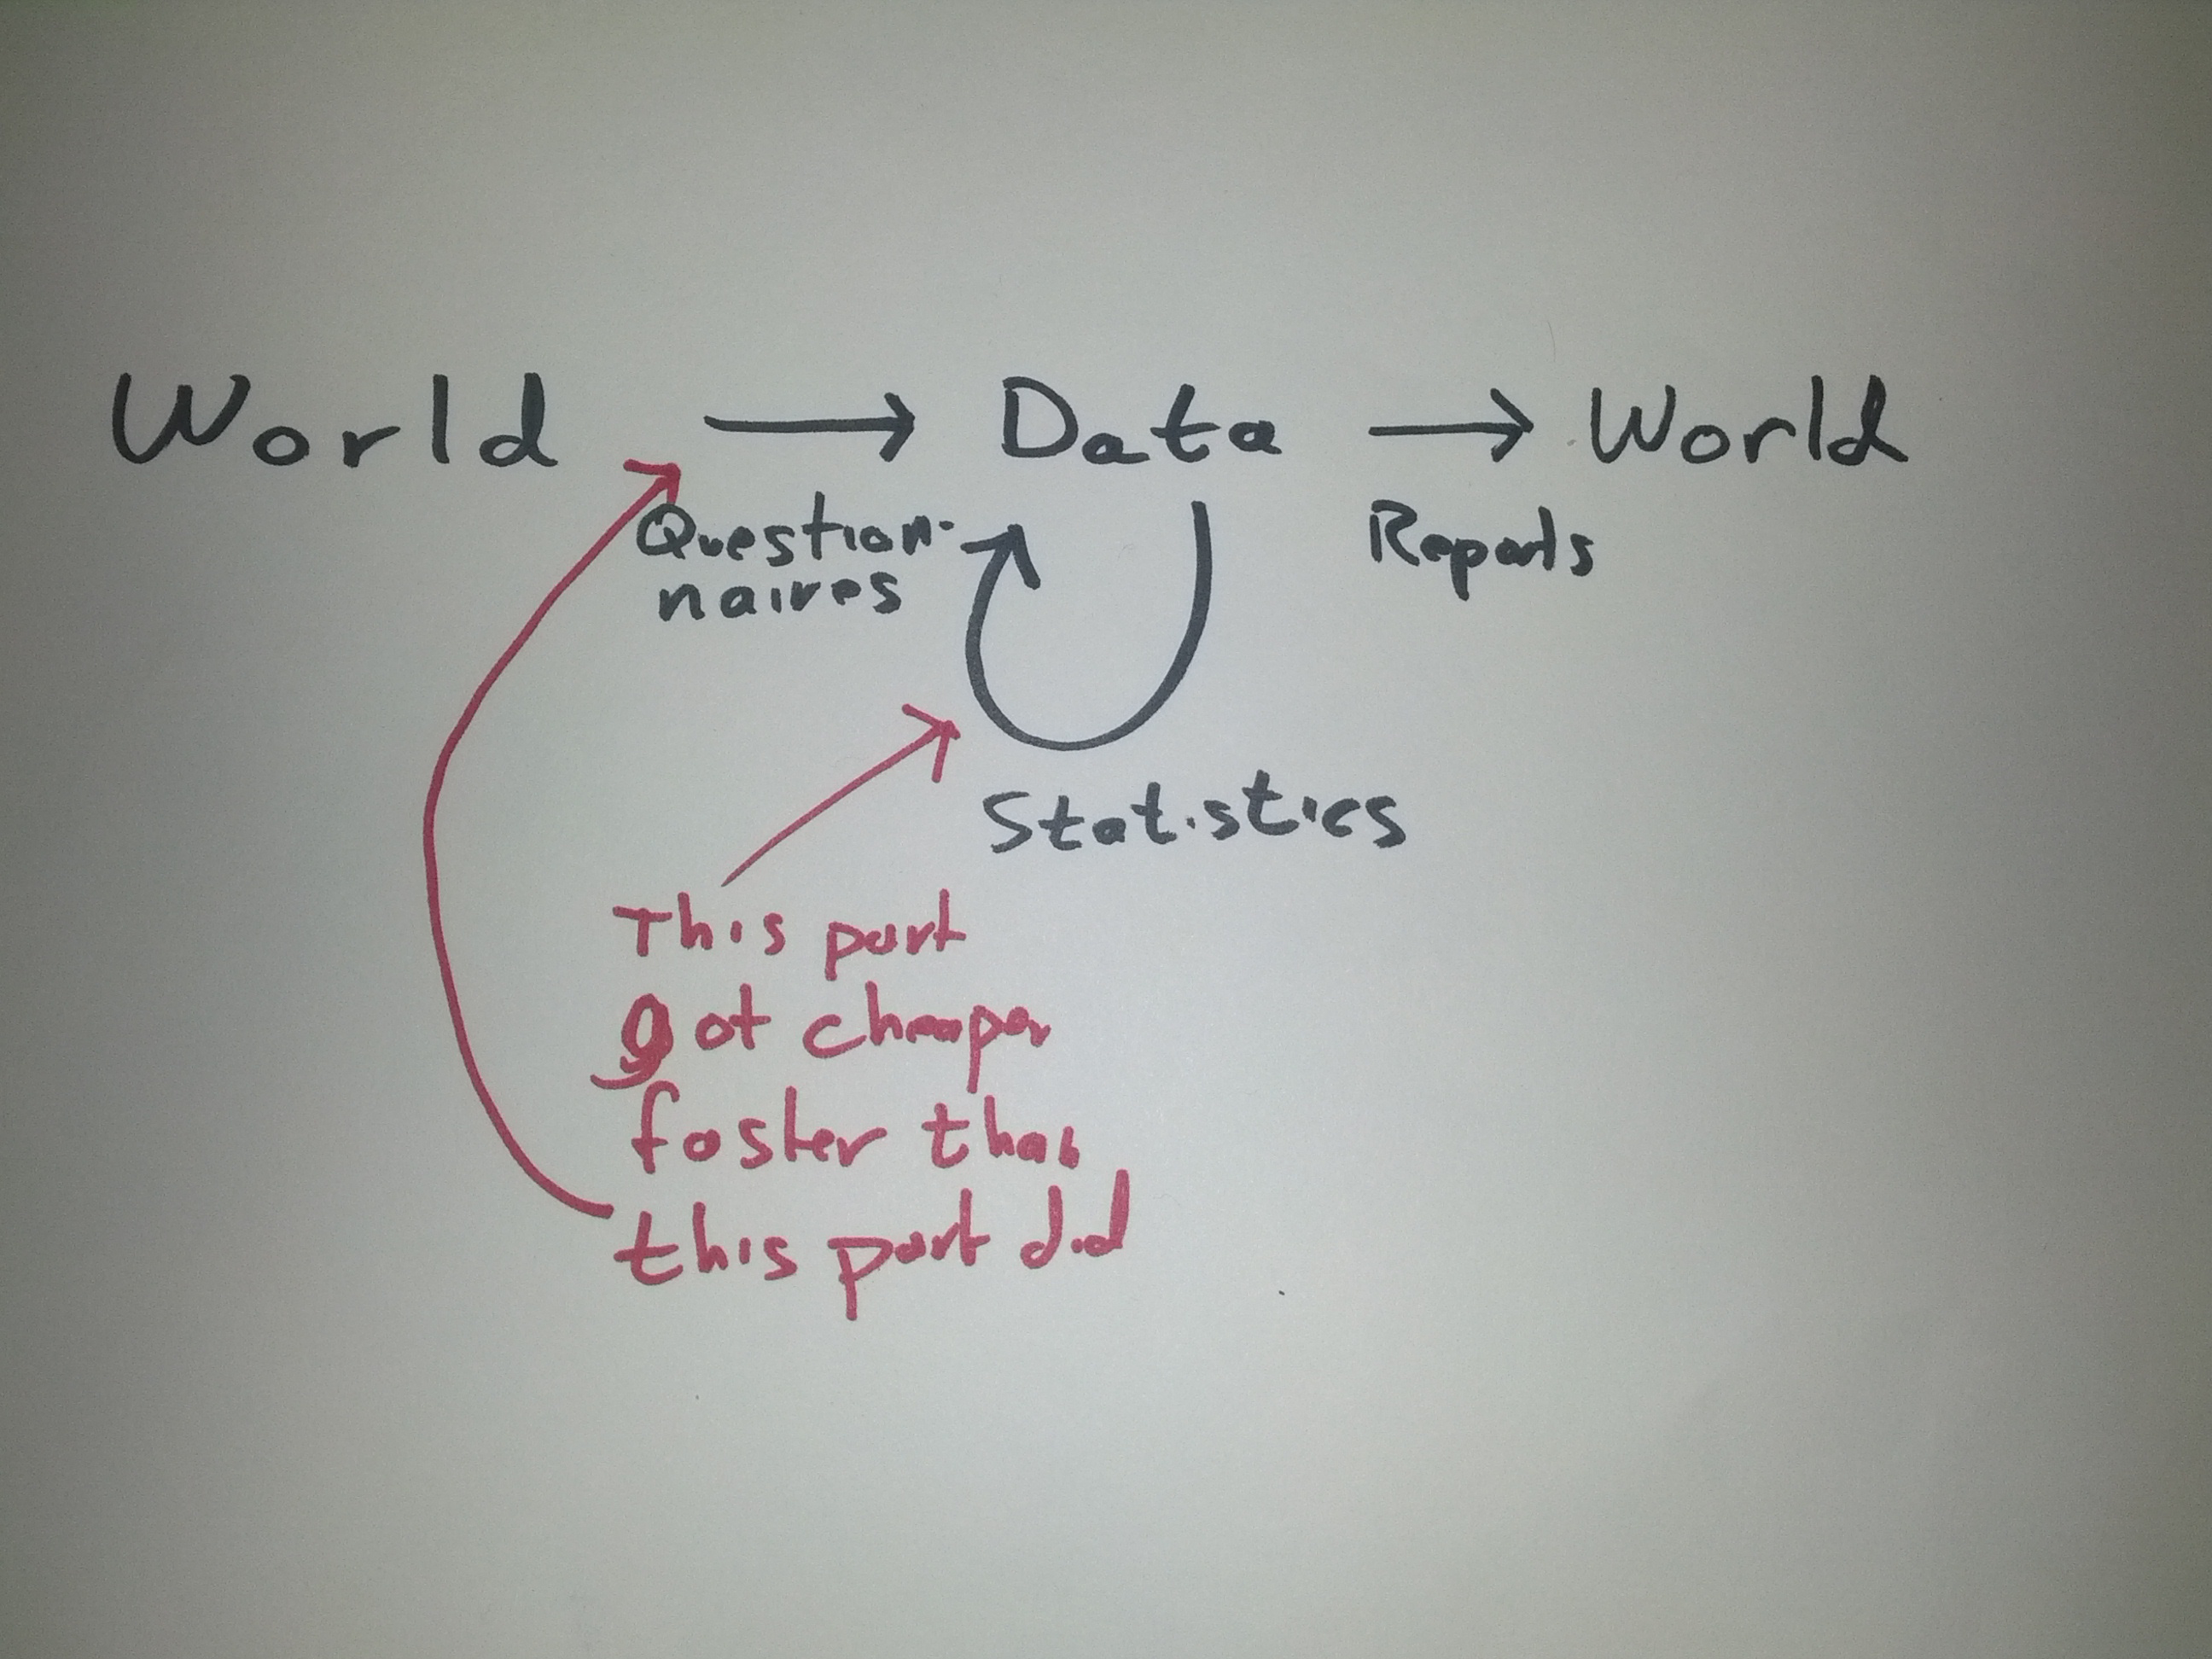 World → Data → World
Question-
naires
Reports
Statistics
This part
got cheaper
faster than
this part did